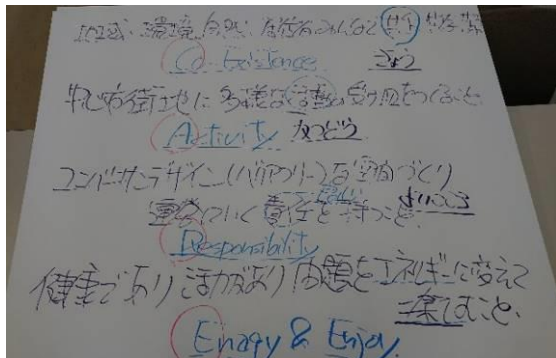 地域、環境、自然、 みんなと 共
Co-Existence きょう
中心市街地に多様な活動の受け皿をつくること
Activity かつどう
ユニバーサルデザイン(バリアフリー)な空間づくり
運営していく責任を持つこと
Responsibility
健康であり活力があり問題をエネルギーに変えて
楽しむこと、
Enagy & Enjoy